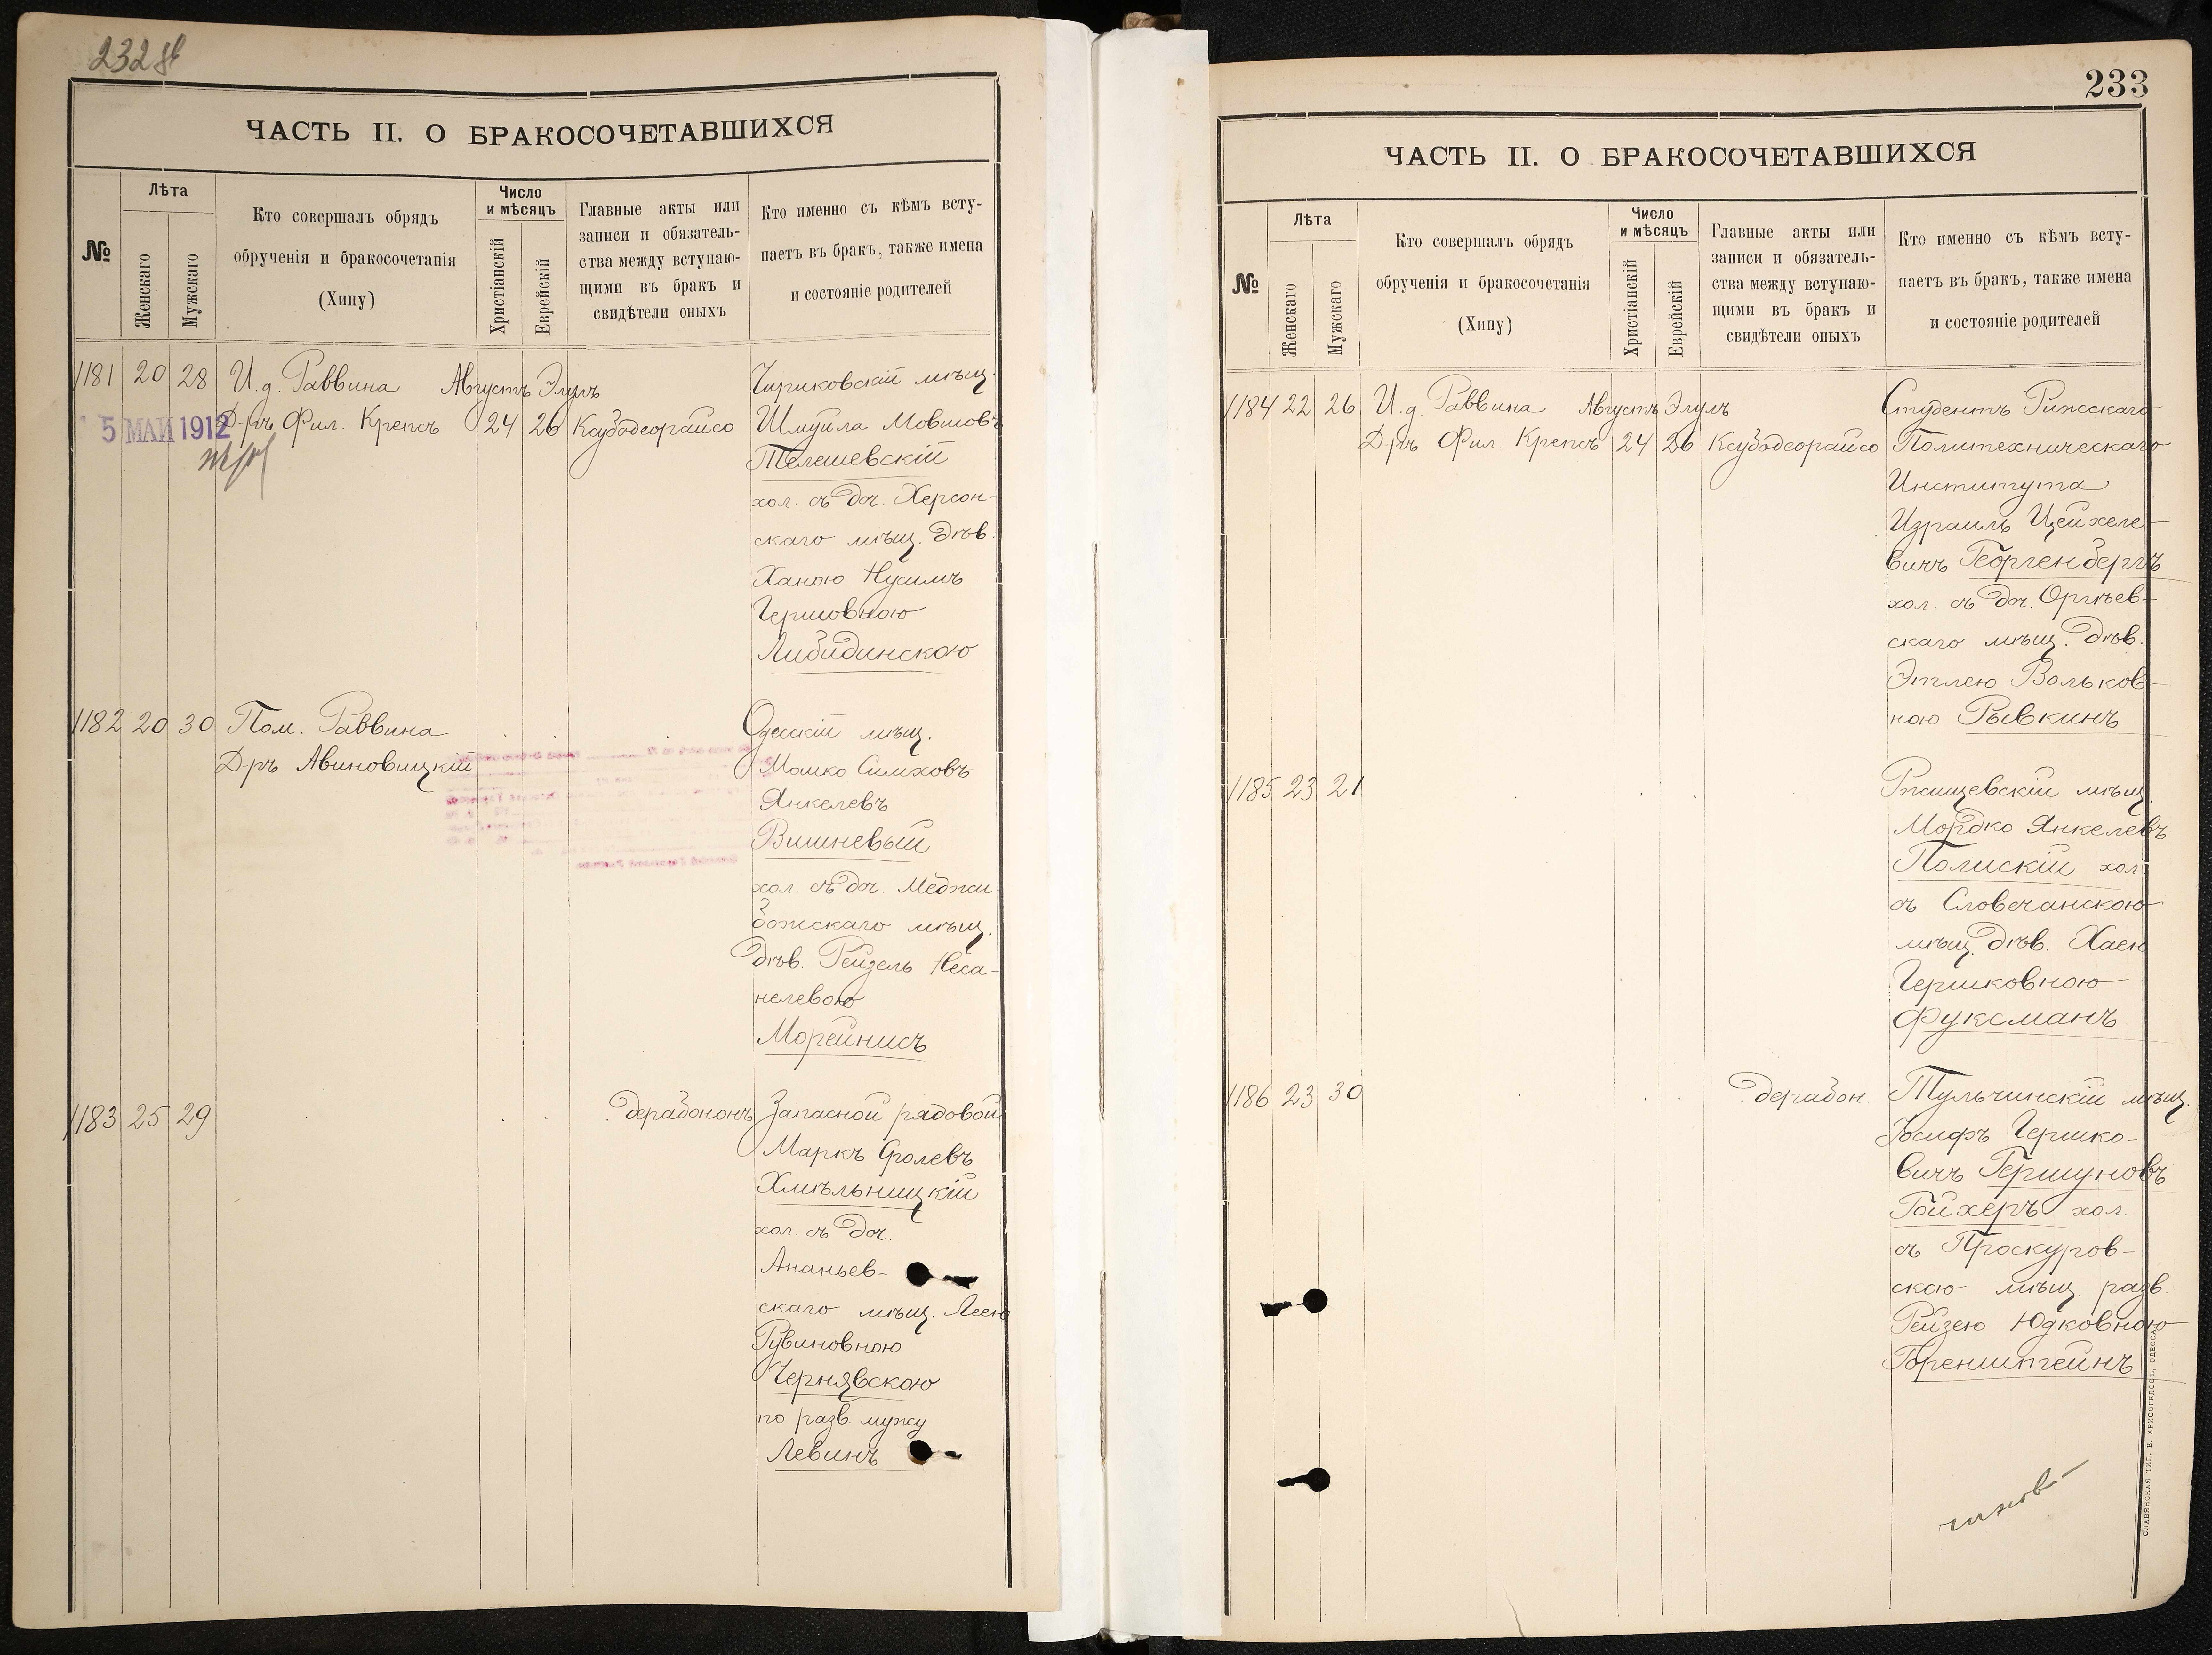 232 об
ЧАСТЬ II. О БРАКОСОЧЕТАВШИХСЯ
№
Лѣта
Женскаго
Мужскаго
Кто совершалъ обрядъ
обрученія и бракосочетанія
(Хипу)
Число
и мѣсяцъ
Христіанскій
Еврейскій
Главные акты или
записи и обязатель-
ства между вступаю-
щими въ бракъ и
свидѣтели оныхъ
Кто именно съ кѣмъ всту-
паетъ въ бракъ, также имена
и состояніе родителей
1181 20 28 И. д. Раввина Августъ Элулъ
Д-ръ Фил. Крепсъ 24 26 Ксубодеорайсо
15 МАЙ 1912
Чириковскій мѣщ.
Шмуйла Мовшовъ
Телешевскій
хол. съ дч. Херсон-
скаго мѣщ. дѣв.
Ханою Нусимъ
Гершовною
Либидинскою
1182 20 30 Пом. Раввина
Д-ръ Авиновицкій
Одесскій мѣщ.
Мошко Симховъ
Янкелевъ
Вишневый
хол. съ дч. Меджи-
божскаго мѣщ.
дѣв. Рейзель Неса-
нелевою
Морейнисъ
1183 25 29
дерабононъ
Запасной рядовой
Маркъ Сролевъ
Хмѣльницкій
хол. съ дч.
Ананьев-
скаго мѣщ. Леею
Рувиновною
Чернявскою
по разв. мужу
Левинъ
233
ЧАСТЬ II. О БРАКОСОЧЕТАВШИХСЯ
№
Лѣта
Женскаго
Мужскаго
Кто совершалъ обрядъ
обрученія и бракосочетанія
(Хипу)
Число
и мѣсяцъ
Христіанскій
Еврейскій
Главные акты или
записи и обязатель-
ства между вступаю-
щими въ бракъ и
свидѣтели оныхъ
Кто именно съ кѣмъ всту-
паетъ въ бракъ, также имена
и состояніе родителей
1184 22 26 И. д. Раввина Августъ Элулъ
Д-ръ Фил. Крепсъ 24 26 Ксубодеорайсо
Студентъ Рижскаго
Политехническаго
Института
Израиль Цейхеле-
вичъ Георгенбергъ
хол. съ дч. Оргѣев-
скаго мѣщ. дѣв.
Этлею Вольков-
ною Рывкинъ
1185 23 21
Ржищевскій мѣщ.
Мордко Янкелевъ
Полискій хол.
съ Словечанскою
мѣщ. дѣв. Хаею
Гершковною
Фуксманъ
1186 23 30
дерабон.
Тульчинскій мѣщ.
Іосифъ Гершко-
вичъ Гершуновъ
Гойхеръ хол.
съ Проскуров-
скою мѣщ. разв.
Рейзею Юдковною
Горенштейнъ
СЛАВЯНСКАЯ ТИП. Е. ХРИСОГЕЛОСЪ, ОДЕССА.